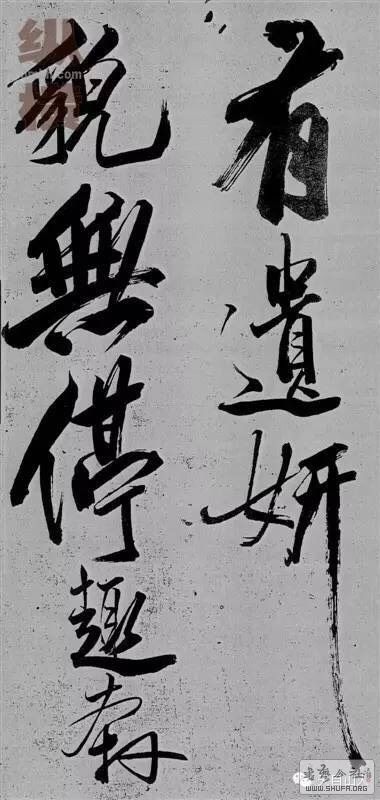 有遺妍
貌無停趣奔
WWW.SHUFA.ORG